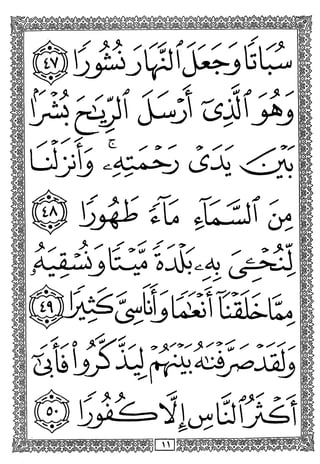 سُبَاتًا وَجَعَلَ ٱلنَّهَارَ نُشُورًا ٤٧
وَهُوَ ٱلَّذِىٓ أَرْسَلَ ٱلرِّيَـٰحَ بُشْرَۢا
بَيْنَ يَدَىْ رَحْمَتِهِۦ ۚ وَأَنزَلْنَا
مِنَ ٱلسَّمَآءِ مَآءً طَهُورًا ٤٨
لِّنُحْـِۧىَ بِهِۦ بَلْدَةً مَّيْتًا وَنُسْقِيَهُۥ
مِمَّا خَلَقْنَآ أَنْعَـٰمًا وَأَنَاسِىَّ كَثِيرًا ٤٩
وَلَقَدْ صَرَّفْنَـٰهُ بَيْنَهُمْ لِيَذَّكَّرُوا۟ فَأَبَىٰٓ
أَكْثَرُ ٱلنَّاسِ إِلَّا كُفُورًا ٥٠
١١